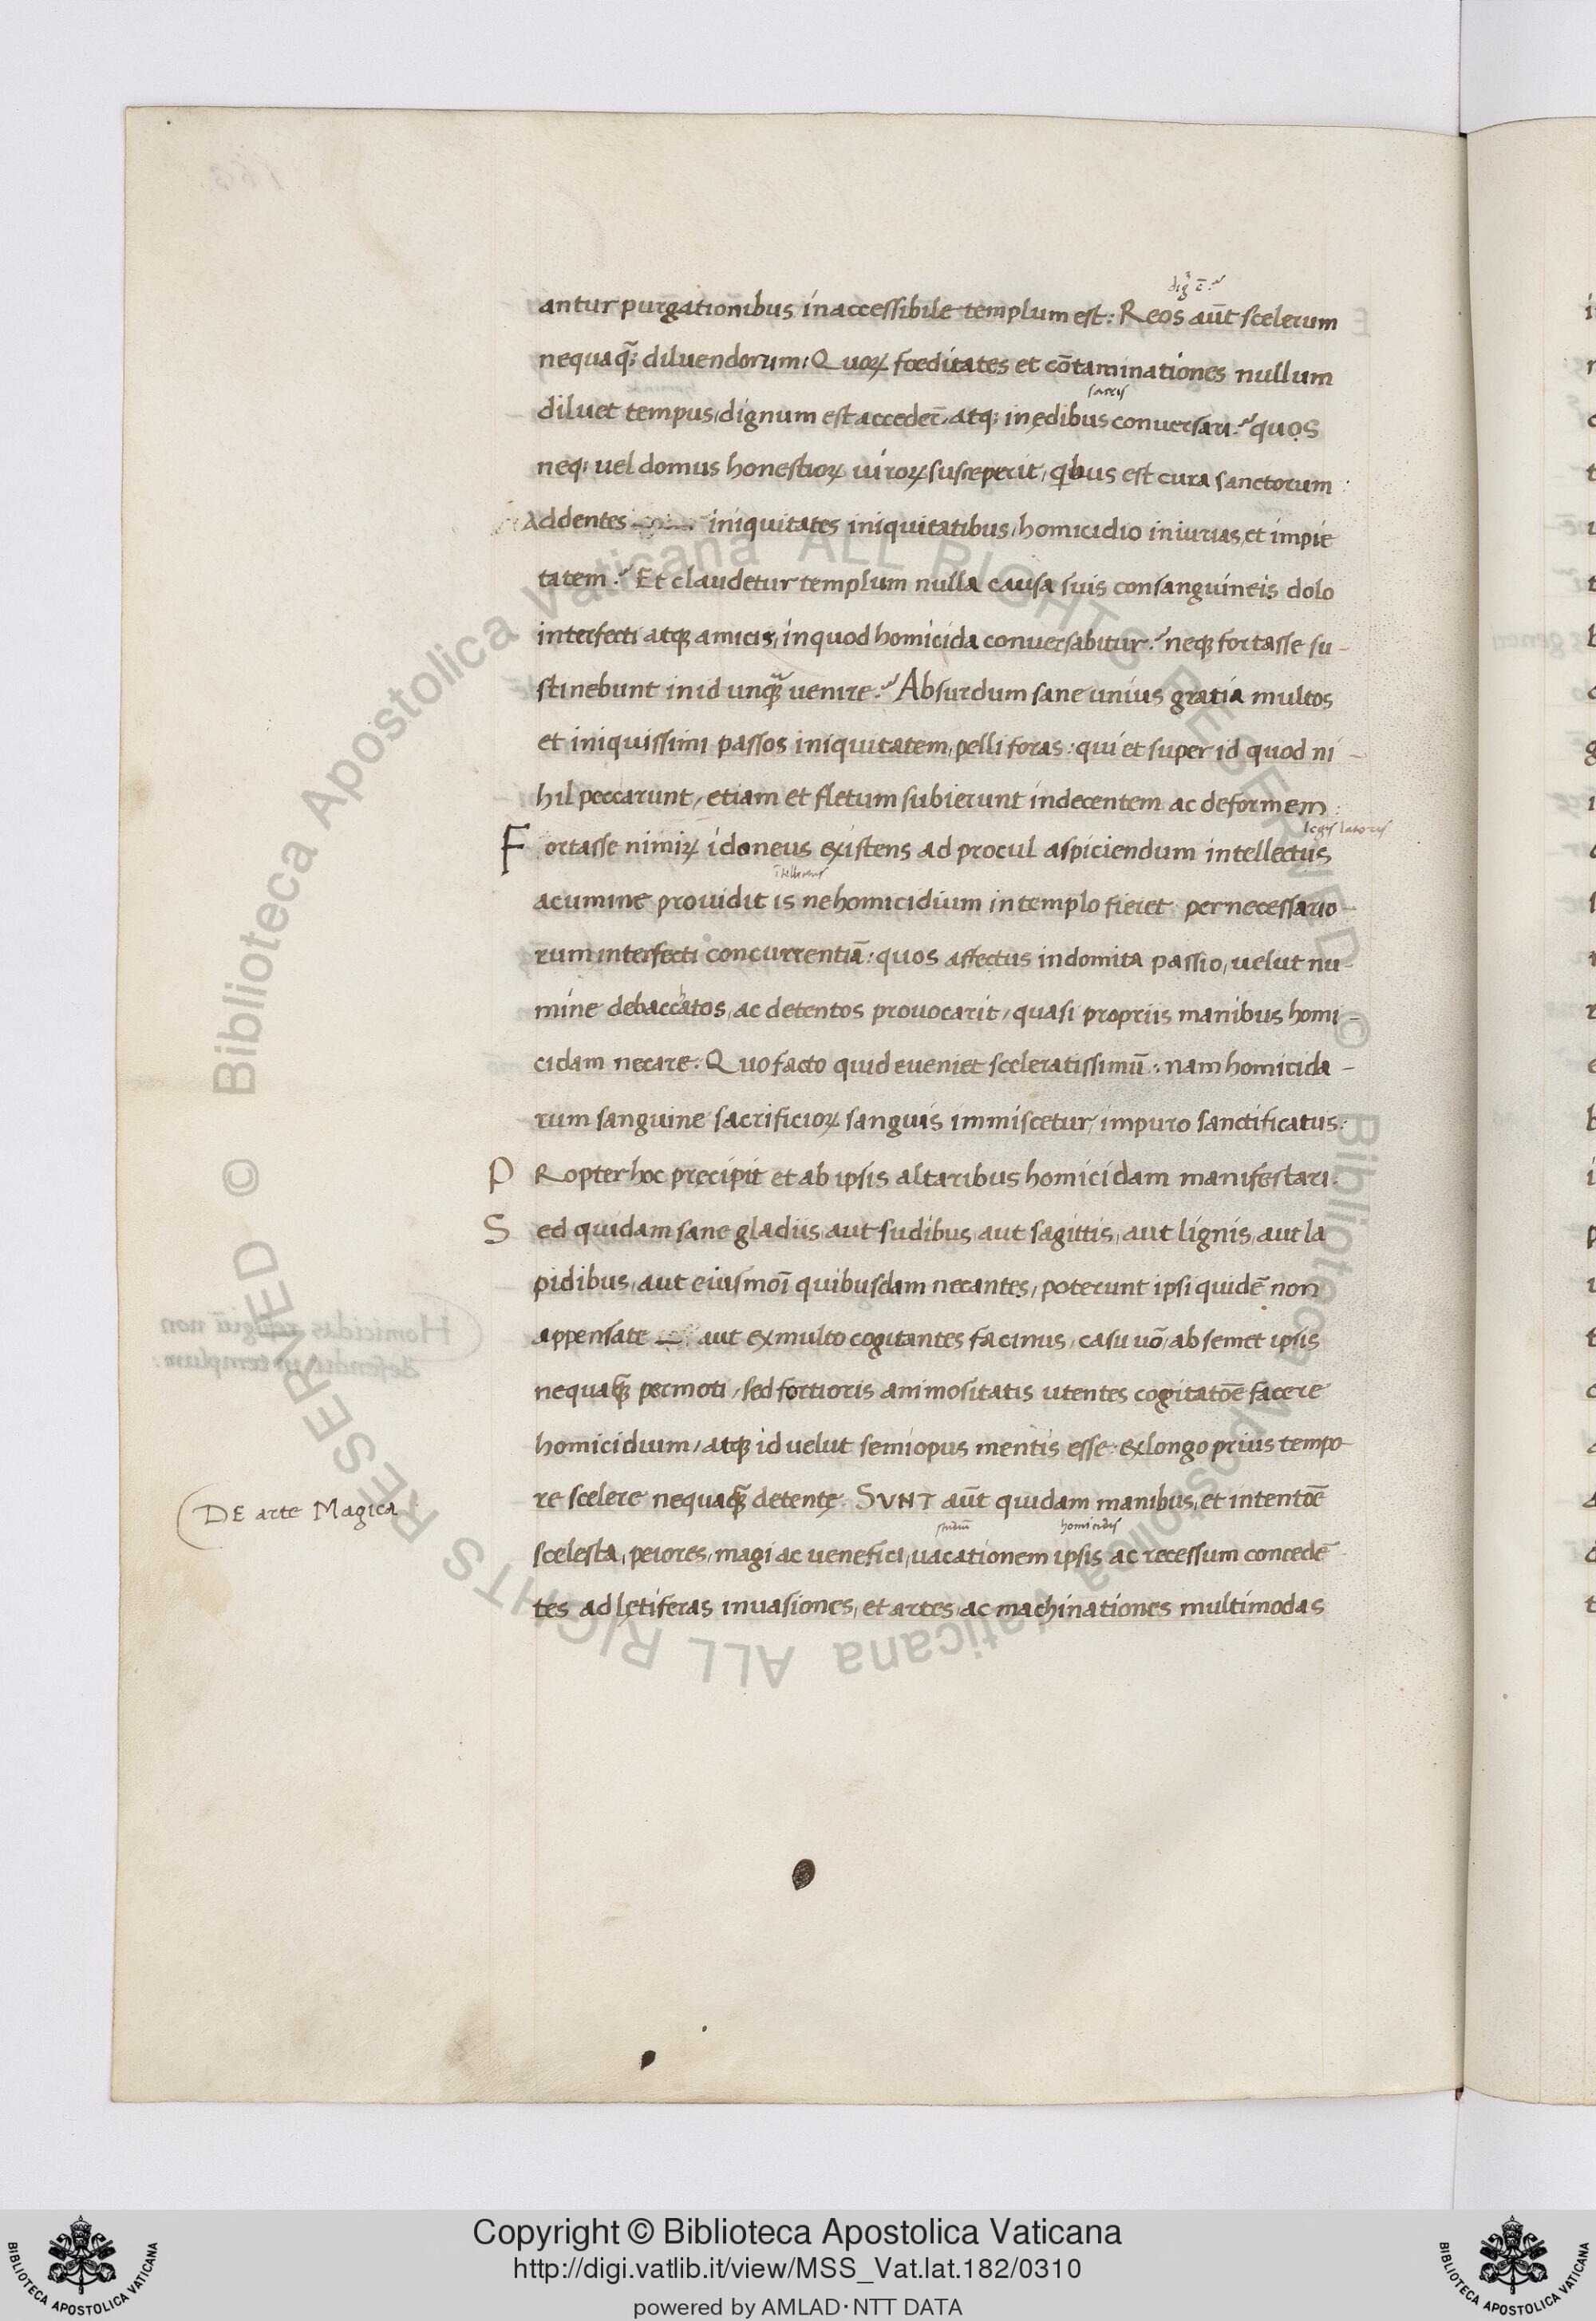 digͣ ē?
antur purgationibus inaccessibile templum est: Reos aūt scelerum
nequaq̄; diluendorum: Quoꝝ fœditates et cōtaminationes nullum
sacris
diluet tempus, dignum est accederē, atq; in ędibus conuersari? quos
neq; uel domus honestioꝝ uiroꝝ susceperit, qbus est cura sanctorum:
Addentes iniquitates iniquitatibus, homicidio iniurias, et impie
tatem? Et claudetur templum nulla causa suis consanguineis dolo
interfecti atq; amicis, in quod homicida conuersabitur? neq; fortasse su-
stinebunt in id unq̄; uenire? Absurdum sane unius gratia multos
et iniquissimi passos iniquitatem, pelli foras: qui et super id quod ni-
hil peccarunt, etiam et fletum subierunt indecentem ac deformem:
legislatoris
Fortasse nimiꝝ idoneus existens ad procul aspiciendum intellectus
acumine prouidit is ne homicidium in templo fieret per necessario-
rum interfecti concurrentiā: quos affectus indomita passio, uelut nu-
mine debacchatos, ac detentos prouocarit, quasi propriis manibus homi-
cidam necare: Quo facto quid eueniet sceleratissimū: nam homicida-
rum sanguine sacrificioꝝ sanguis immiscetur, impuro sanctificatus:
PRopter hoc pręcipit et ab ipsis altaribus homicidam manifestari.
Sed quidam sane gladiis, aut sudibus, aut sagittis, aut lignis, aut la
pidibus, aut eiusmoī quibusdam necantes, poterunt ipsi quidē non
appensate aut ex multo cogitantes facinus, casu uō, ab semet ipsis
nequaq̄; permoti, sed fortioris animositatis utentes cogitatōe facere
homicidium, atq; id uelut semiopus mentis esse: ex longo prius tempo-
re scelere nequaq̄; detentę. SVNT aūt quidam manibus, et intentōe
DE arte Magica
studiū homicidis
scelesta, peiores, magi ac uenefici, uacationem ipsis ac recessum concedē
tes ad lętiferas inuasiones, et artes, ac machinationes multimodas
Copyright © Biblioteca Apostolica Vaticana
http://digi.vatlib.it/view/MSS_Vat.lat.182/0310
powered by AMLAD·NTT DATA